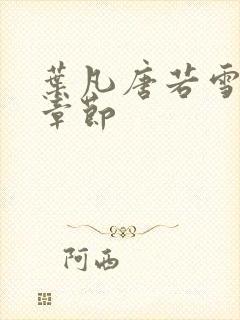 葉凡唐若雪
章節
阿西